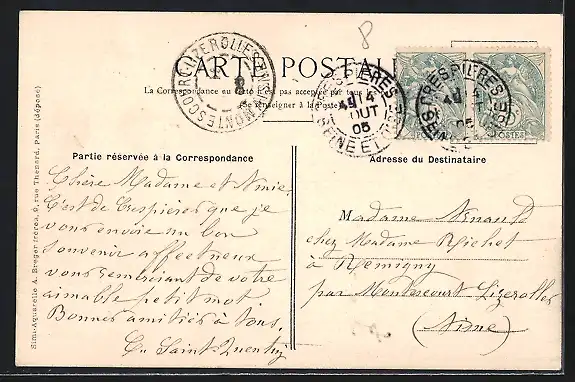 CARTE POSTALE
La Correspondance au recto n'est pas acceptée par tous les
(Se renseigner à la Poste)
MONTESCOURT-LIZEROLLES
CRESPIÈRES
4
AOUT
05
SEINE ET OISE
POSTES
Partie réservée à la Correspondance
Adresse du Destinataire
Chère Madame et Amie.
C'est de Crespières que je
vous envoie un bon
souvenir affectueux
vous remerciant de votre
aimable petit mot
Bonnes amitiés à tous.
Saint-Quentin
Madame
chez Madame Richet
à Remigny
par Montescourt Lizerolles
(Aisne)
Simi-Aquarelle A. Breger frères, 9, rue Thénard, Paris (déposé)
8